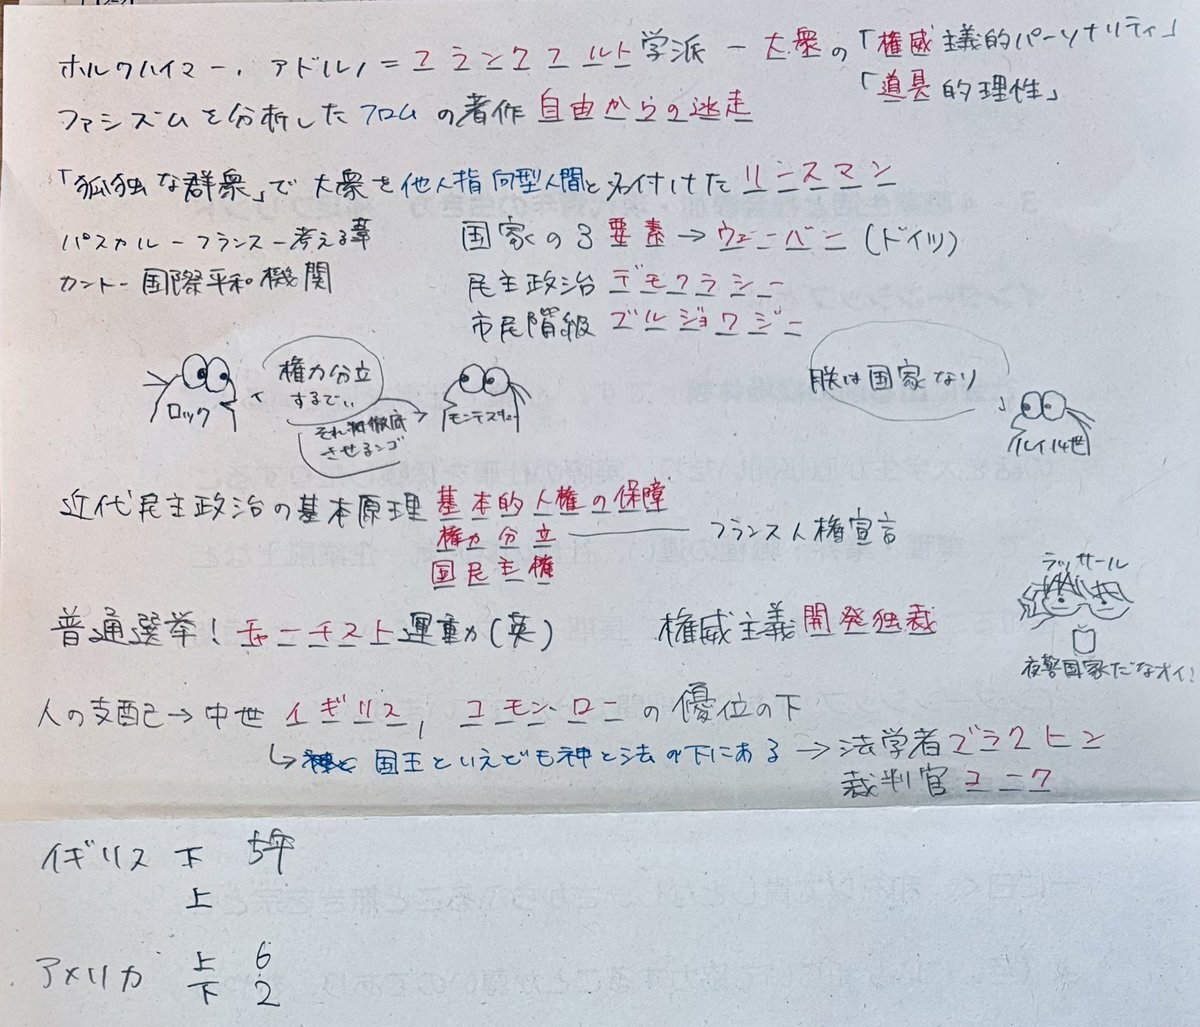 ホルクハイマー, アドルノ=フランクフルト学派 - 大衆の「権威主義的パーソナリティ」
「道具的理性」
ファシズムを分析したフロムの著作 自由からの逃走
「孤独な群衆」で 大衆を他人指向型人間と名付けた リースマン
パスカル-フランス-考える葦
カント-国際平和機関
国家の3要素→ウェーバー(ドイツ)
民主政治 デモクラシー
市民階級 ブルジョワジー
権力分立
するでぃ
ロック
それ徹底
させるンゴ
モンテスキュー
朕は国家なり
ルイ14世
近代民主政治の基本原理 基本的人権の保障
権力分立 フランス人権宣言
国民主権
普通選挙! チャーチスト運動(英)
権威主義 開発独裁
ラッサール
夜警国家だなオイ!
人の支配→中世 イギリス, コモン・ローの優位の下
↳国王といえども神と法の下にある→法学者ブラクトン
裁判官コーク
イギリス 下 5年
上
アメリカ 上 6
下 2